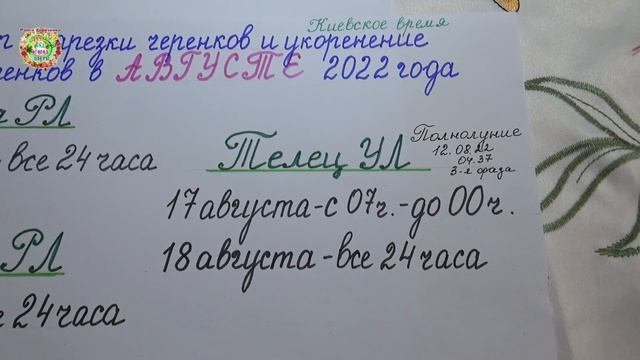 Киевское время
резки черенков и укоренение
енков в АВГУСТЕ 2022 года
РЛ
все 24 часа
Телец УЛ
Полнолуние
12.08.22
04.37
3-я фаза
17 августа - с 07ч. - до 00ч.
18 августа - все 24 часа
РЛ
24 часа